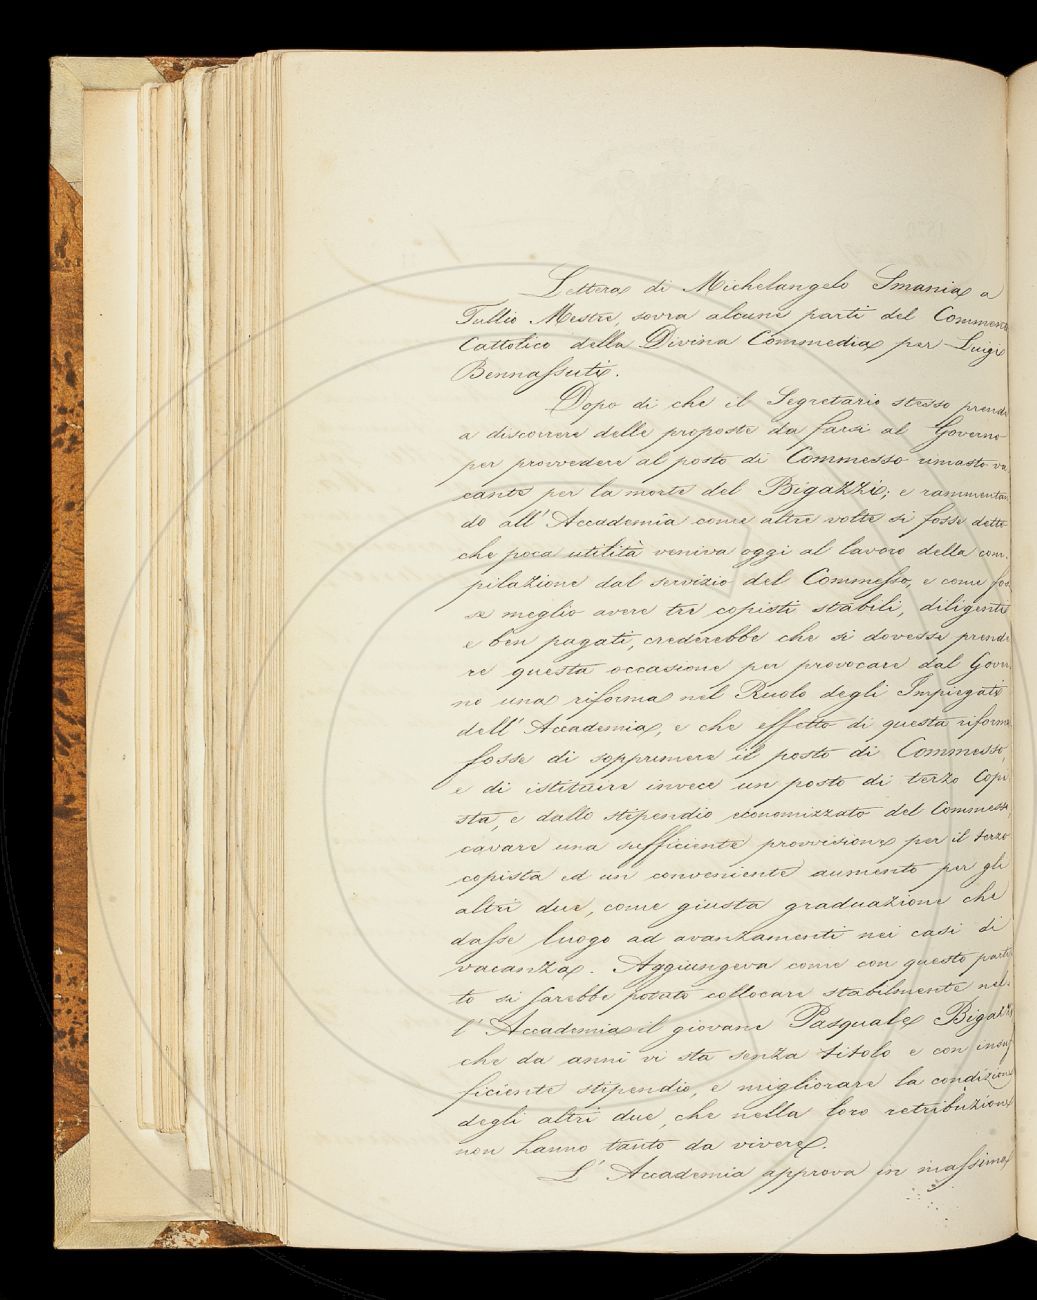 Lettera di Michelangelo Smania a
Tullio Mestre, sovra alcune parti del Commento
Cattolico della Divina Commedia per Luigi
Bennassuti.
Dopo di che il Segretario stesso prende
a discorrere delle proposte da farsi al Governo
per provvedere al posto di Commesso rimasto va
cante per la morte del Bigazzi; e rammentan
do all'Accademia come altre volte si fosse detto
che poca utilità veniva oggi al lavoro della com
pilazione dal servizio del Commesso, e come fos
se meglio avere tre copisti stabili, diligenti
e ben pagati, crederebbe che si dovesse prende
re questa occasione per provocare dal Gover
no una riforma nel Ruolo degli Impiegati
dell'Accademia, e che effetto di questa riforma
fosse di sopprimere il posto di Commesso,
e di istituire invece un posto di terzo Copi
sta, e dallo stipendio economizzato del Commesso,
cavare una sufficiente provvisione per il terzo
copista ed un conveniente aumento per gli
altri due, come giusta graduazione che
dasse luogo ad avanzamenti nei casi di
vacanza. Aggiungeva come con questo parti
to si sarebbe potuto collocare stabilmente nel
l'Accademia il giovane Pasquale Bigazzi
che da anni vi sta senza titolo e con insuf
ficiente stipendio, e migliorare la condizione
degli altri due, che nella loro retribuzione
non hanno tanto da vivere.
L'Accademia approva in massima